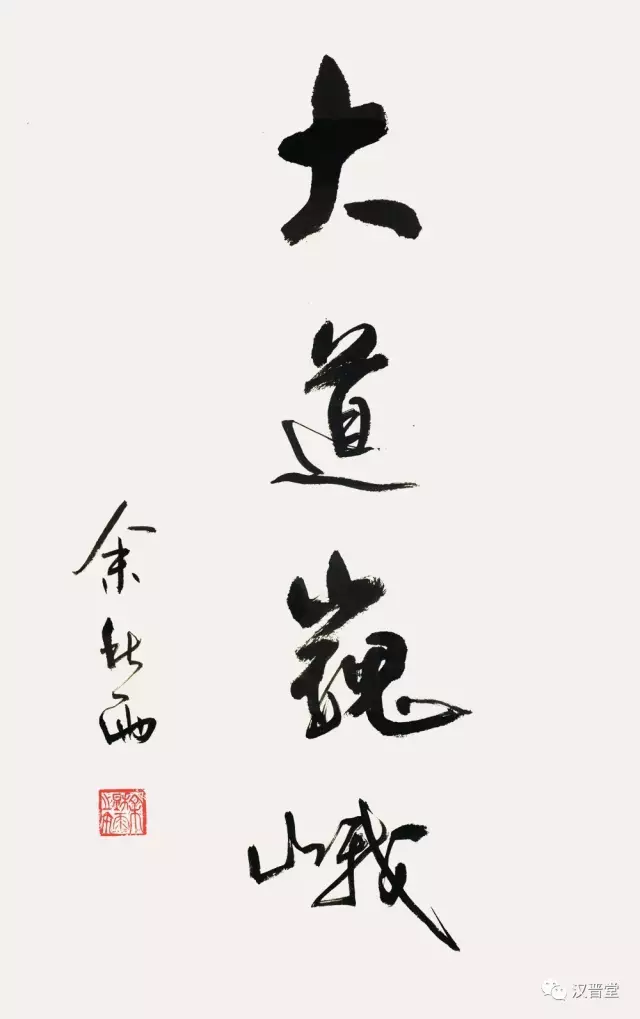 大道巍峨
余秋雨
汉晋堂